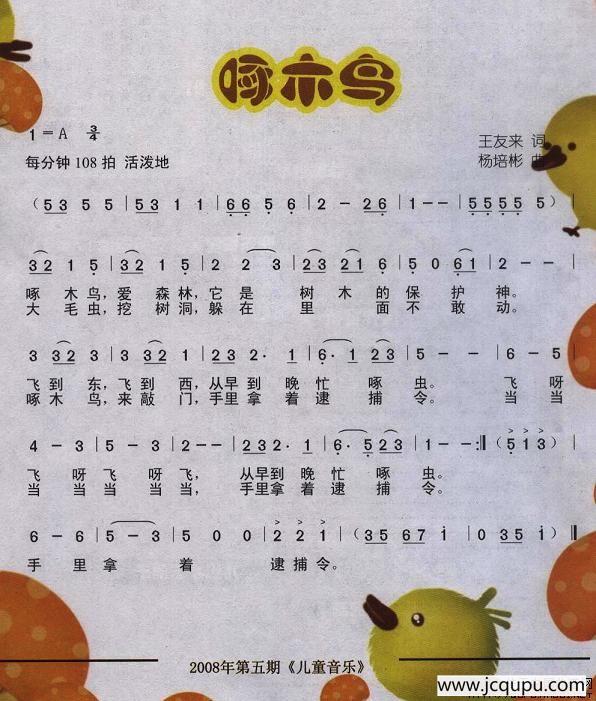 啄木鸟
1=A 3/4
王友来 词
每分钟108拍 活泼地
杨培彬 曲
(53 5 5 | 53 1 1 | 66 5 6 | 2 - 26 | 1 - - | 55 55 5) |
32 1 5 | 32 1 5 | 2 2 3 | 23 21 6 | 5 0 61 | 2 - - |
啄 木 鸟，爱 森 林，它 是 树 木 的 保 护 神。
大 毛 虫，挖 树 洞，躲 在 里 面 不 敢 动。
3 32 3 | 3 32 1 | 232· 1 | 6·1 23 | 5 - - | 6 - 5 |
飞 到 东，飞 到 西，从早 到 晚 忙 啄 虫。 飞 呀
啄 木 鸟，来 敲 门，手里 拿 着 逮 捕 令。 当 当
4 - 3 | 5 - 3 | 2 - - | 232· 1 | 6·5 23 | 1 - - :‖ (5 1 3) |
飞 呀 飞 呀 飞， 从早到 晚 忙 啄 虫。
当 当 当 当 当， 手里拿 着 逮 捕 令。
6 - 6 | 5 - 3 | 5 0 0 | 2 2 1 | (35 67 i | 0 35 i) ‖
手 里 拿 着 逮 捕 令。
2008年第五期《儿童音乐》
www.jcqupu.com